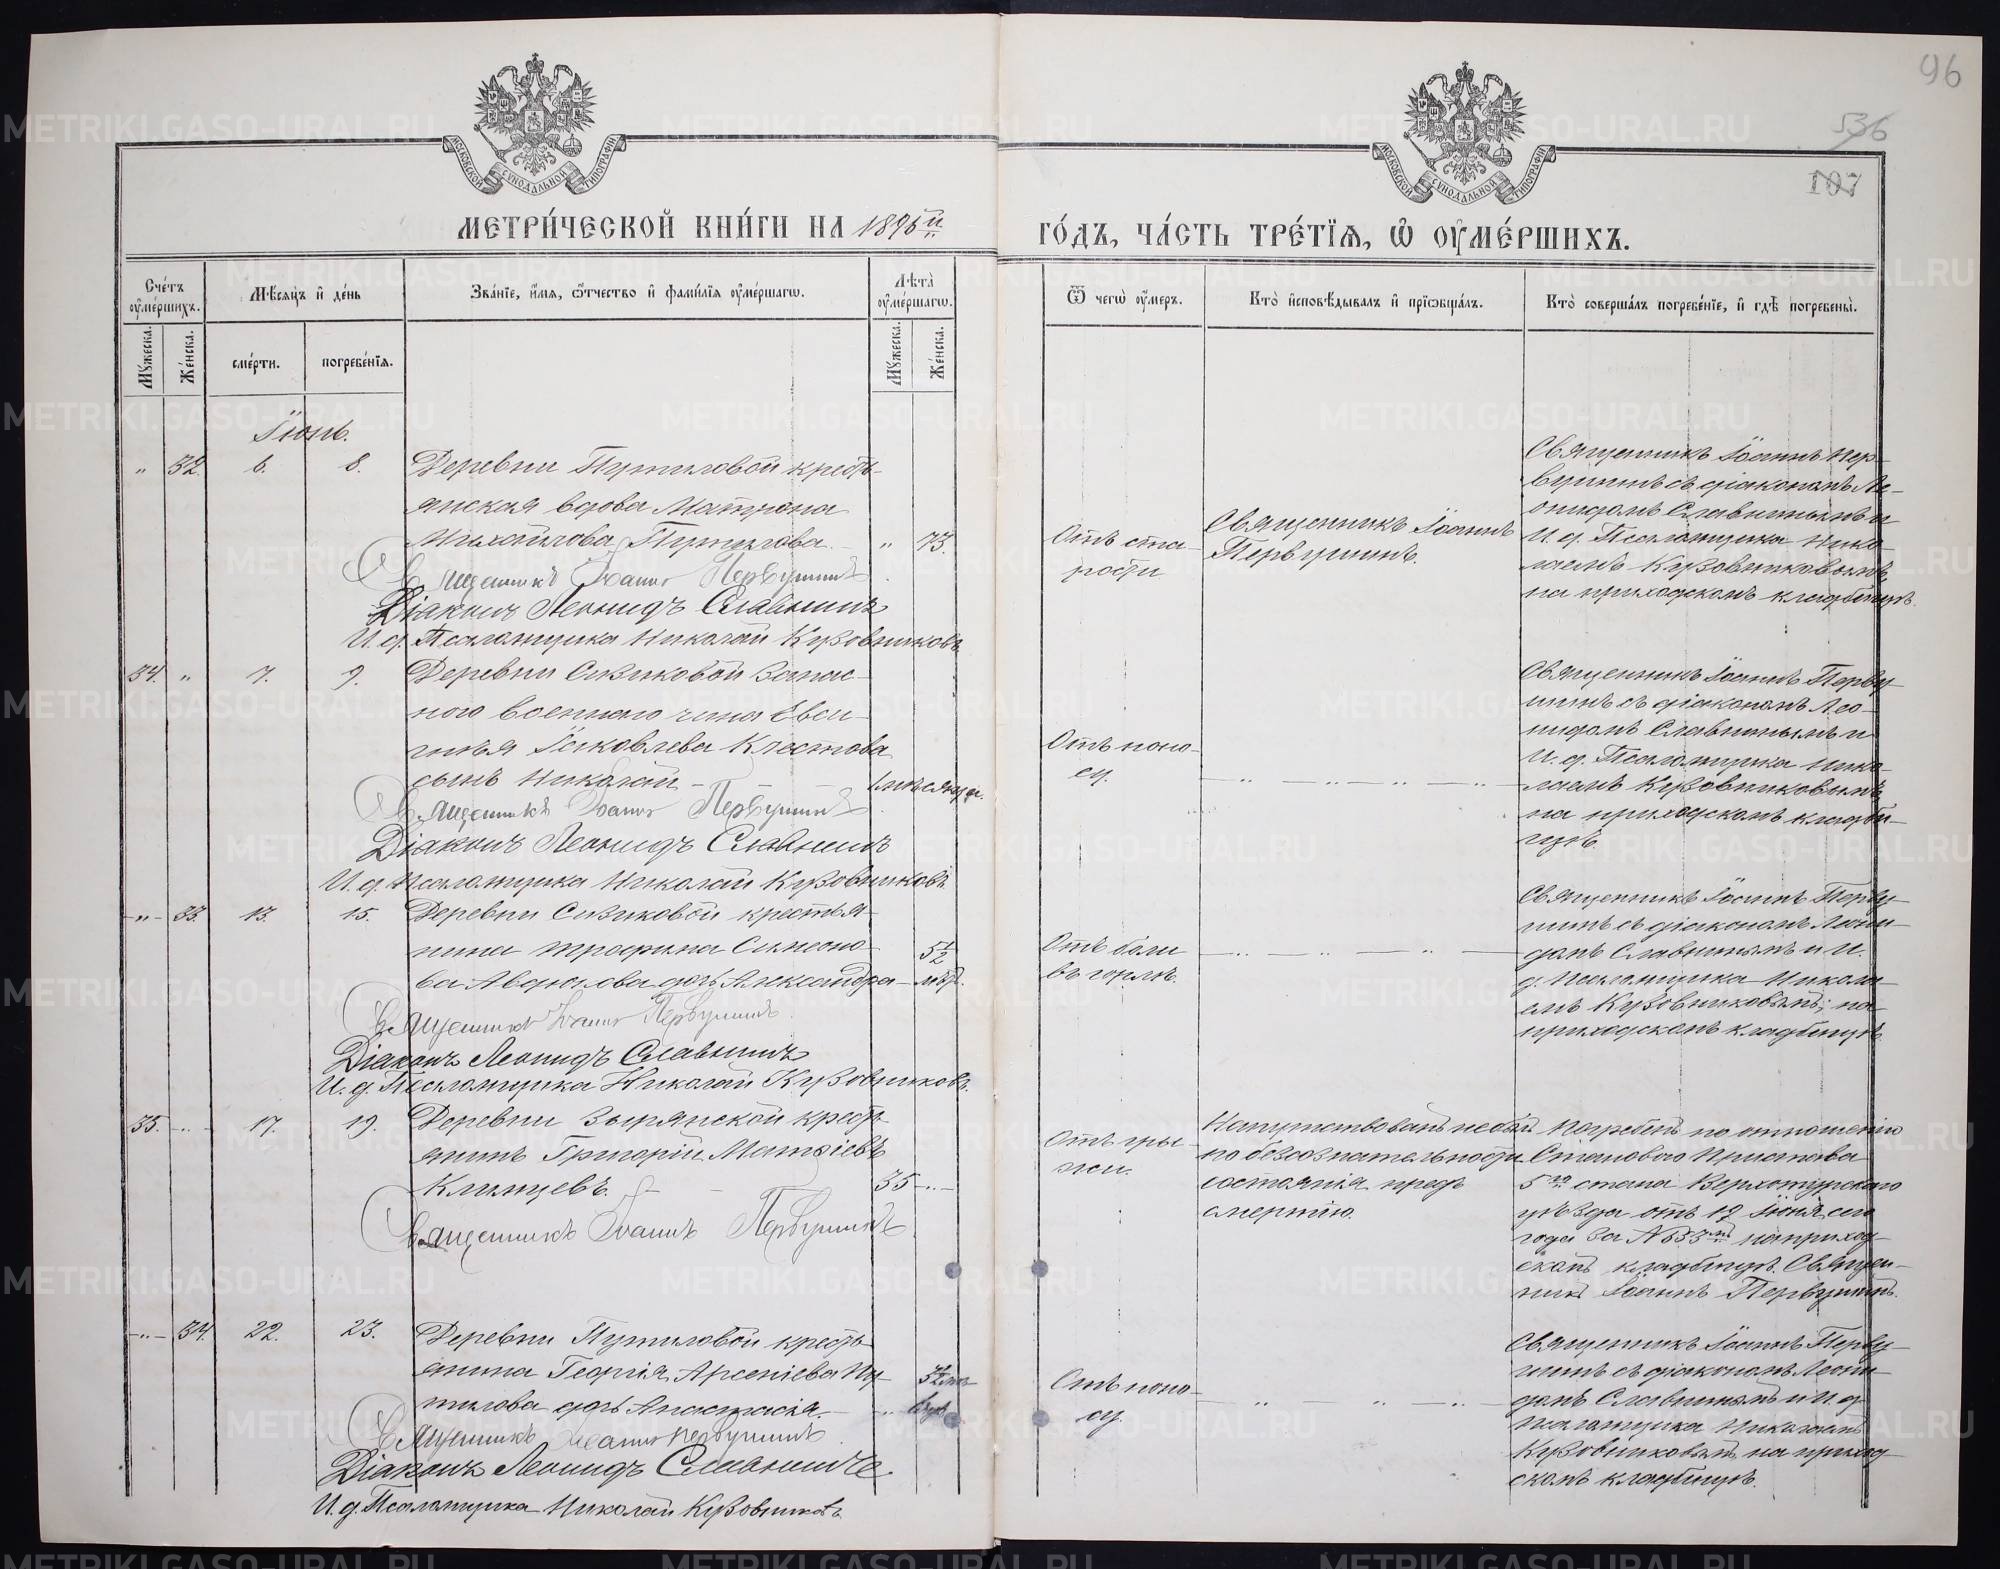 96
536
107
МОСКОВСКОЙ СѴНОДАЛЬНОЙ ТИПОГРАФІИ
МОСКОВСКОЙ СѴНОДАЛЬНОЙ ТИПОГРАФІИ
МЕТРИ́ЧЕСКОЙ КНИ́ГИ НА 1896й
ГО́ДЪ, ЧА́СТЬ ТРЕ́ТІѦ, Ѿ ОУ҆МЕ́РШИХЪ.
Сче́тъ оу҆ме́ршихъ.
Мѣ́сяцъ и҆ де́нь
Зва́нїе, и҆́мѧ, ѻ҆́тчество и҆ фами́лїѧ оу҆ме́ршагѡ.
Лѣ́та оу҆ме́ршагѡ.
Ѿ чегѡ̀ оу҆́меръ.
Кто̀ и҆сповѣ́дывалъ и҆ прїѡбща́лъ.
Кто̀ соверша́лъ погребе́нїе, и҆ гдѣ̀ погребены̀.
Мꙋ́жеска.
Же́нска.
сме́рти.
погребе́нїѧ.
Мꙋ́жеска.
Же́нска.
Іюнь.
" 32. 6. 8.
Деревни Путиловой кресть-
янская вдова Матрона
Михайлова Путилова. " 73.
Священникъ Іоаннъ Первушинъ
Діаконъ Леонидъ Славнинъ
И. д. Псаломщика Николай Кузовниковъ
Отъ ста-
рости
Священникъ Іоаннъ
Первушинъ.
Священникъ Іоаннъ Пер-
вушинъ съ діакономъ Ле-
онидомъ Славнинымъ и
И. д. Псаломщика Нико-
лаемъ Кузовниковымъ
на приходскомъ кладбищѣ.
34. " 7. 9.
Деревни Сизиковой Запас-
ного военнаго чина Евси-
гнѣя Іаковлева Клестова
сынъ Николай 1 мѣсяца.
Священникъ Іоаннъ Первушинъ
Діаконъ Леонидъ Славнинъ
И. д. Псаломщика Николай Кузовниковъ
Отъ поно-
су.
Священникъ Іоаннъ Перву-
шинъ съ діакономъ Лео-
нидомъ Славнинымъ и
И. д. Псаломщика Нико-
лаемъ Кузовниковымъ
на приходскомъ кладби-
щѣ.
" 33. 13. 15.
Деревни Сизиковой крестья-
нина Трофима Симеоно-
ва дочь Александра
5½
Священникъ Іоаннъ Первушинъ
Діаконъ Леонидъ Славнинъ
И. д. Псаломщика Николай Кузовниковъ.
Отъ боли
въ горлѣ.
Священникъ Іоаннъ Перву-
шинъ съ діакономъ Леони-
домъ Славнинымъ и И.
д. Псаломщика Никола-
емъ Кузовниковымъ; на
приходскомъ кладбищѣ.
35. " 17. 19.
Деревни Зырянской кресть-
янинъ Григорій Матѳіевъ
Климцевъ. 35 "
Священникъ Іоаннъ Первушинъ
Отъ гры-
жи.
Напутствованъ не былъ
по безсознательности
состоянія предъ
смертію.
Погребенъ по отношенію
Станового Пристава
5го стана Верхотурскаго
уѣзда отъ 19 Іюня сего
года за на приход-
скомъ кладбищѣ. Священ-
никъ Іоаннъ Первушинъ.
" 34. 22. 23.
Деревни Путиловой кресть-
янина Георгія Арсеніева Пу-
тилова дочь Анастасія.
Священникъ Іоаннъ Первушинъ
Діаконъ Леонидъ Славнинъ
И. д. Псаломщика Николай Кузовниковъ
Отъ поно-
су.
Священникъ Іоаннъ Перву-
шинъ съ діакономъ Леони-
домъ Славнинымъ и И. д.
Псаломщика Николаемъ
Кузовниковымъ на приход-
скомъ кладбищѣ.
METRIKI.GASO-URAL.RU